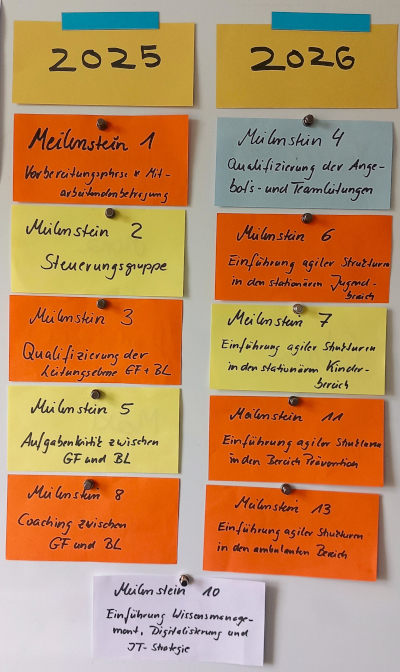 2025
Meilenstein 1
Vorbereitungsphase & Mit-
arbeitendenbefragung
Meilenstein 2
Steuerungsgruppe
Meilenstein 3
Qualifizierung der
Leitungsebene GF + BL
Meilenstein 5
Aufgabenkritik zwischen
GF und BL
Meilenstein 8
Coaching zwischen
GF und BL
2026
Meilenstein 4
Qualifizierung der Ange-
bots- und Teamleitungen
Meilenstein 6
Einführung agiler Strukturen
in den stationären Jugend-
bereich
Meilenstein 7
Einführung agiler Strukturen
in den stationären Kinder-
bereich
Meilenstein 11
Einführung agiler Strukturen
in den Bereich Prävention
Meilenstein 13
Einführung agiler Strukturen
in den ambulanten Bereich
Meilenstein 10
Einführung Wissensmanage-
ment, Digitalisierung und
IT-Strategie